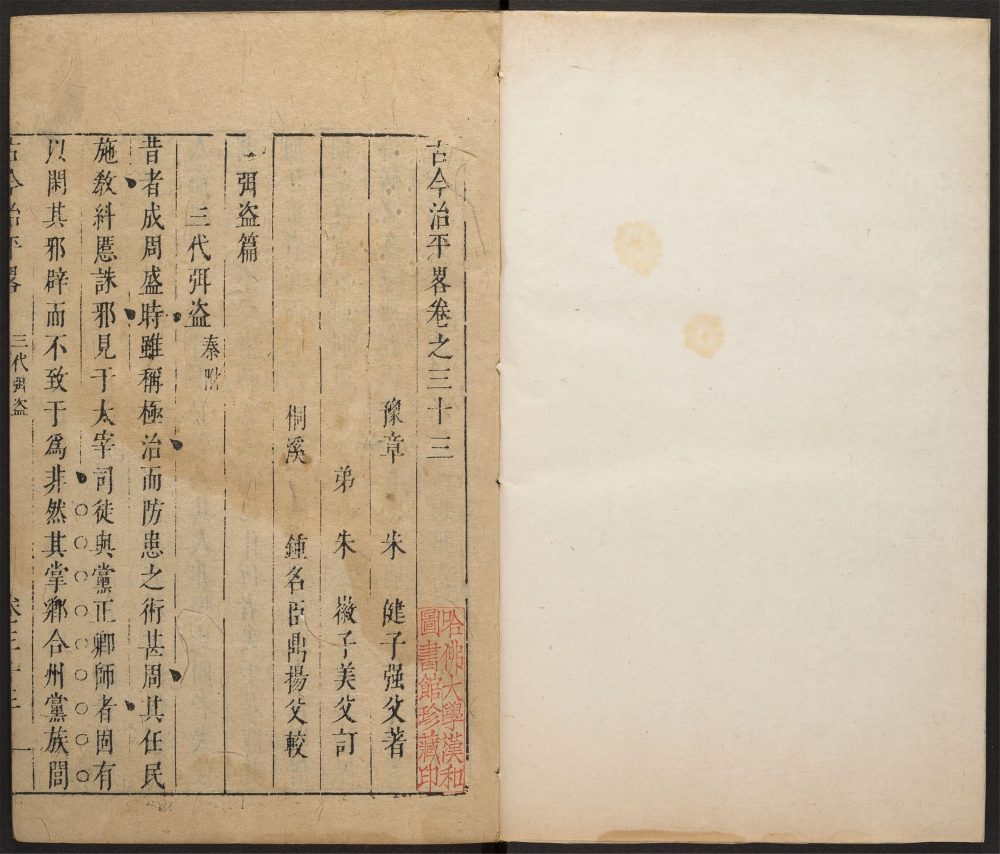 古今治平畧卷之三十三
豫章 朱 健子强父著
弟 朱 徽子美父訂
桐溪 鍾名臣鼎揚父較
弭盜篇
三代弭盜 秦附
昔者成周盛時雖稱極治而防患之術甚周其任民
施教糾慝誅邪見于太宰司徒與黨正鄉師者固有
以閑其邪辟而不致于為非然其掌鄉合州黨族閭
古今治平畧 三代弭盜 卷三十三 一
哈佛大學漢和
圖書館珍藏印